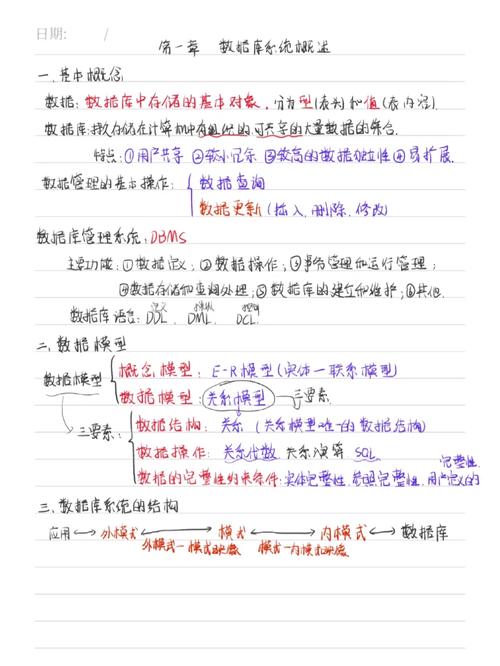 日期: /
第一章 数据库系统概述
一.基本概念
数据:数据库中存储的基本对象,分为型(表头)和值(表内容).
数据库:长期存储在计算机中有组织的可共享的大量数据的集合.
特点:①用户共享 ②较小冗余 ③较高的数据独立性 ④易扩展.
数据管理的基本操作:{数据查询
数据更新(插入.删除.修改)
数据库管理系统:DBMS
主要功能:①数据定义;②数据操作;③事务管理和运行管理;
④数据存储和查询处理;⑤数据库的建立和维护;⑥其他.
定义 操纵 控制
数据库语言:DDL. DML. DCL.
二.数据模型
数据模型{概念模型:E-R模型(实体—联系模型)
数据模型:关系模型→三要素.
三要素:{数据结构:关系(关系模型唯一的数据结构)
数据操作:关系代数.关系演算 SQL
数据的完整性约束条件:实体完整性.参照完整性.用户定义的完整性.
三.数据库系统的结构
应用⟷外模式⟷模式⟷内模式⟷数据库
外模式—模式映像 模式—内模式映像